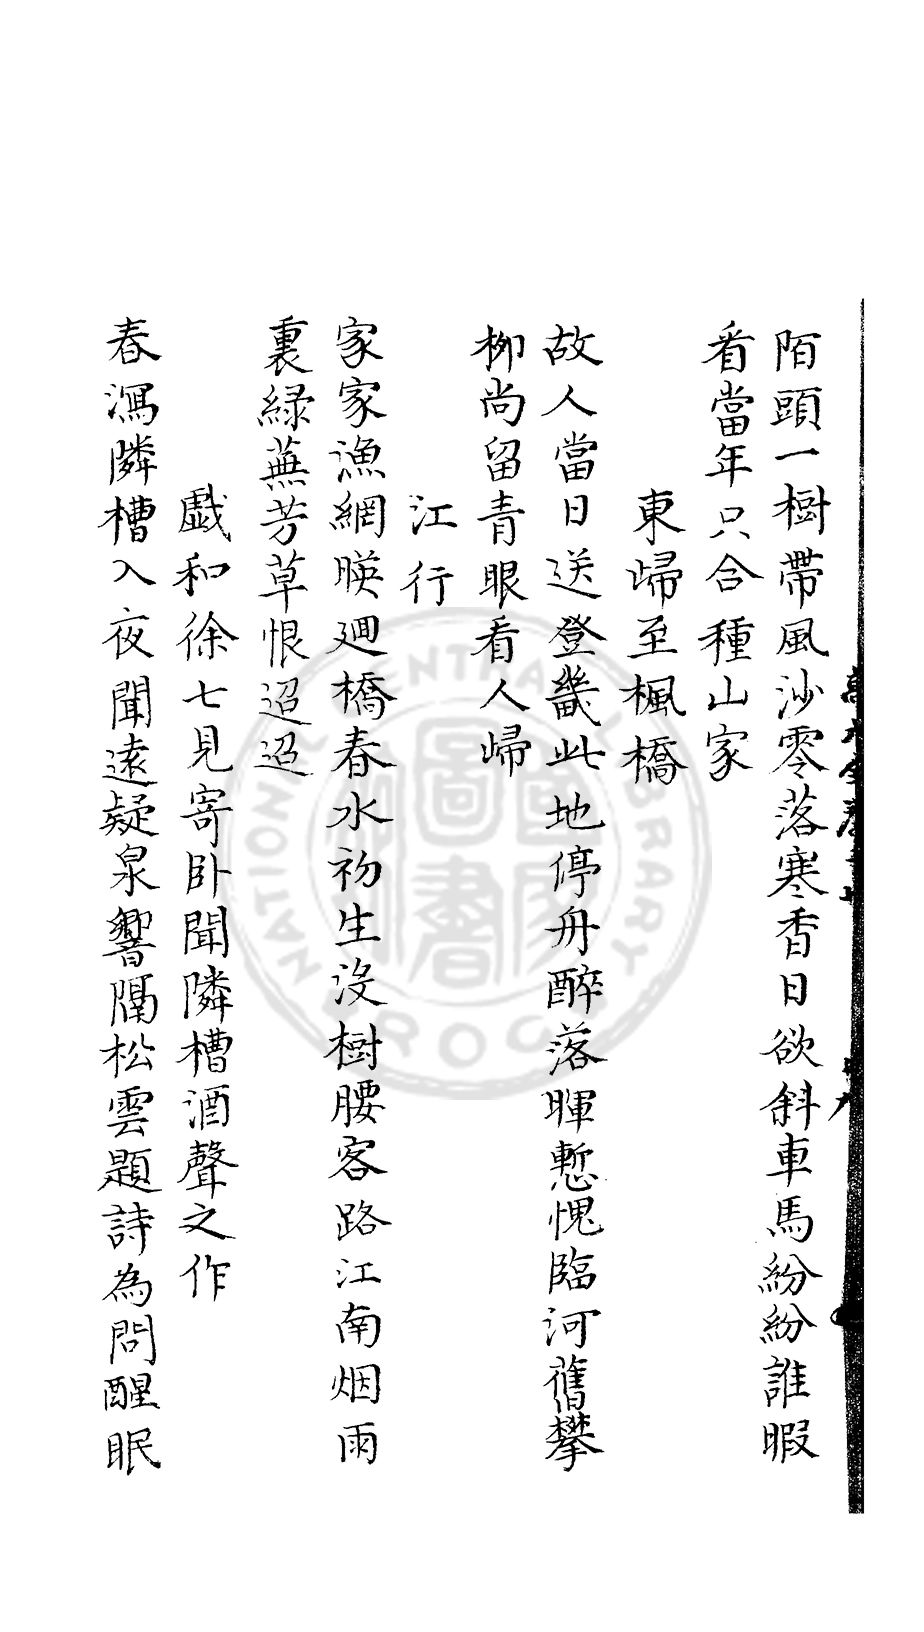 陌頭一樹帶風沙零落寒香日欲斜車馬紛紛誰暇
看當年只合種山家
東歸至楓橋
故人當日送登畿此地停舟醉落暉慙愧臨河舊攀
柳尚留青眼看人歸
江行
家家漁網暎迴橋春水初生沒樹腰客路江南烟雨
裏緑蕪芳草恨迢迢
戯和徐七見寄卧聞隣槽酒聲之作
春瀉隣槽入夜聞遠疑泉響隔松雲題詩為問醒眠
NATIONAL CENTRAL LIBRARY
R.O.C
國家圖書館